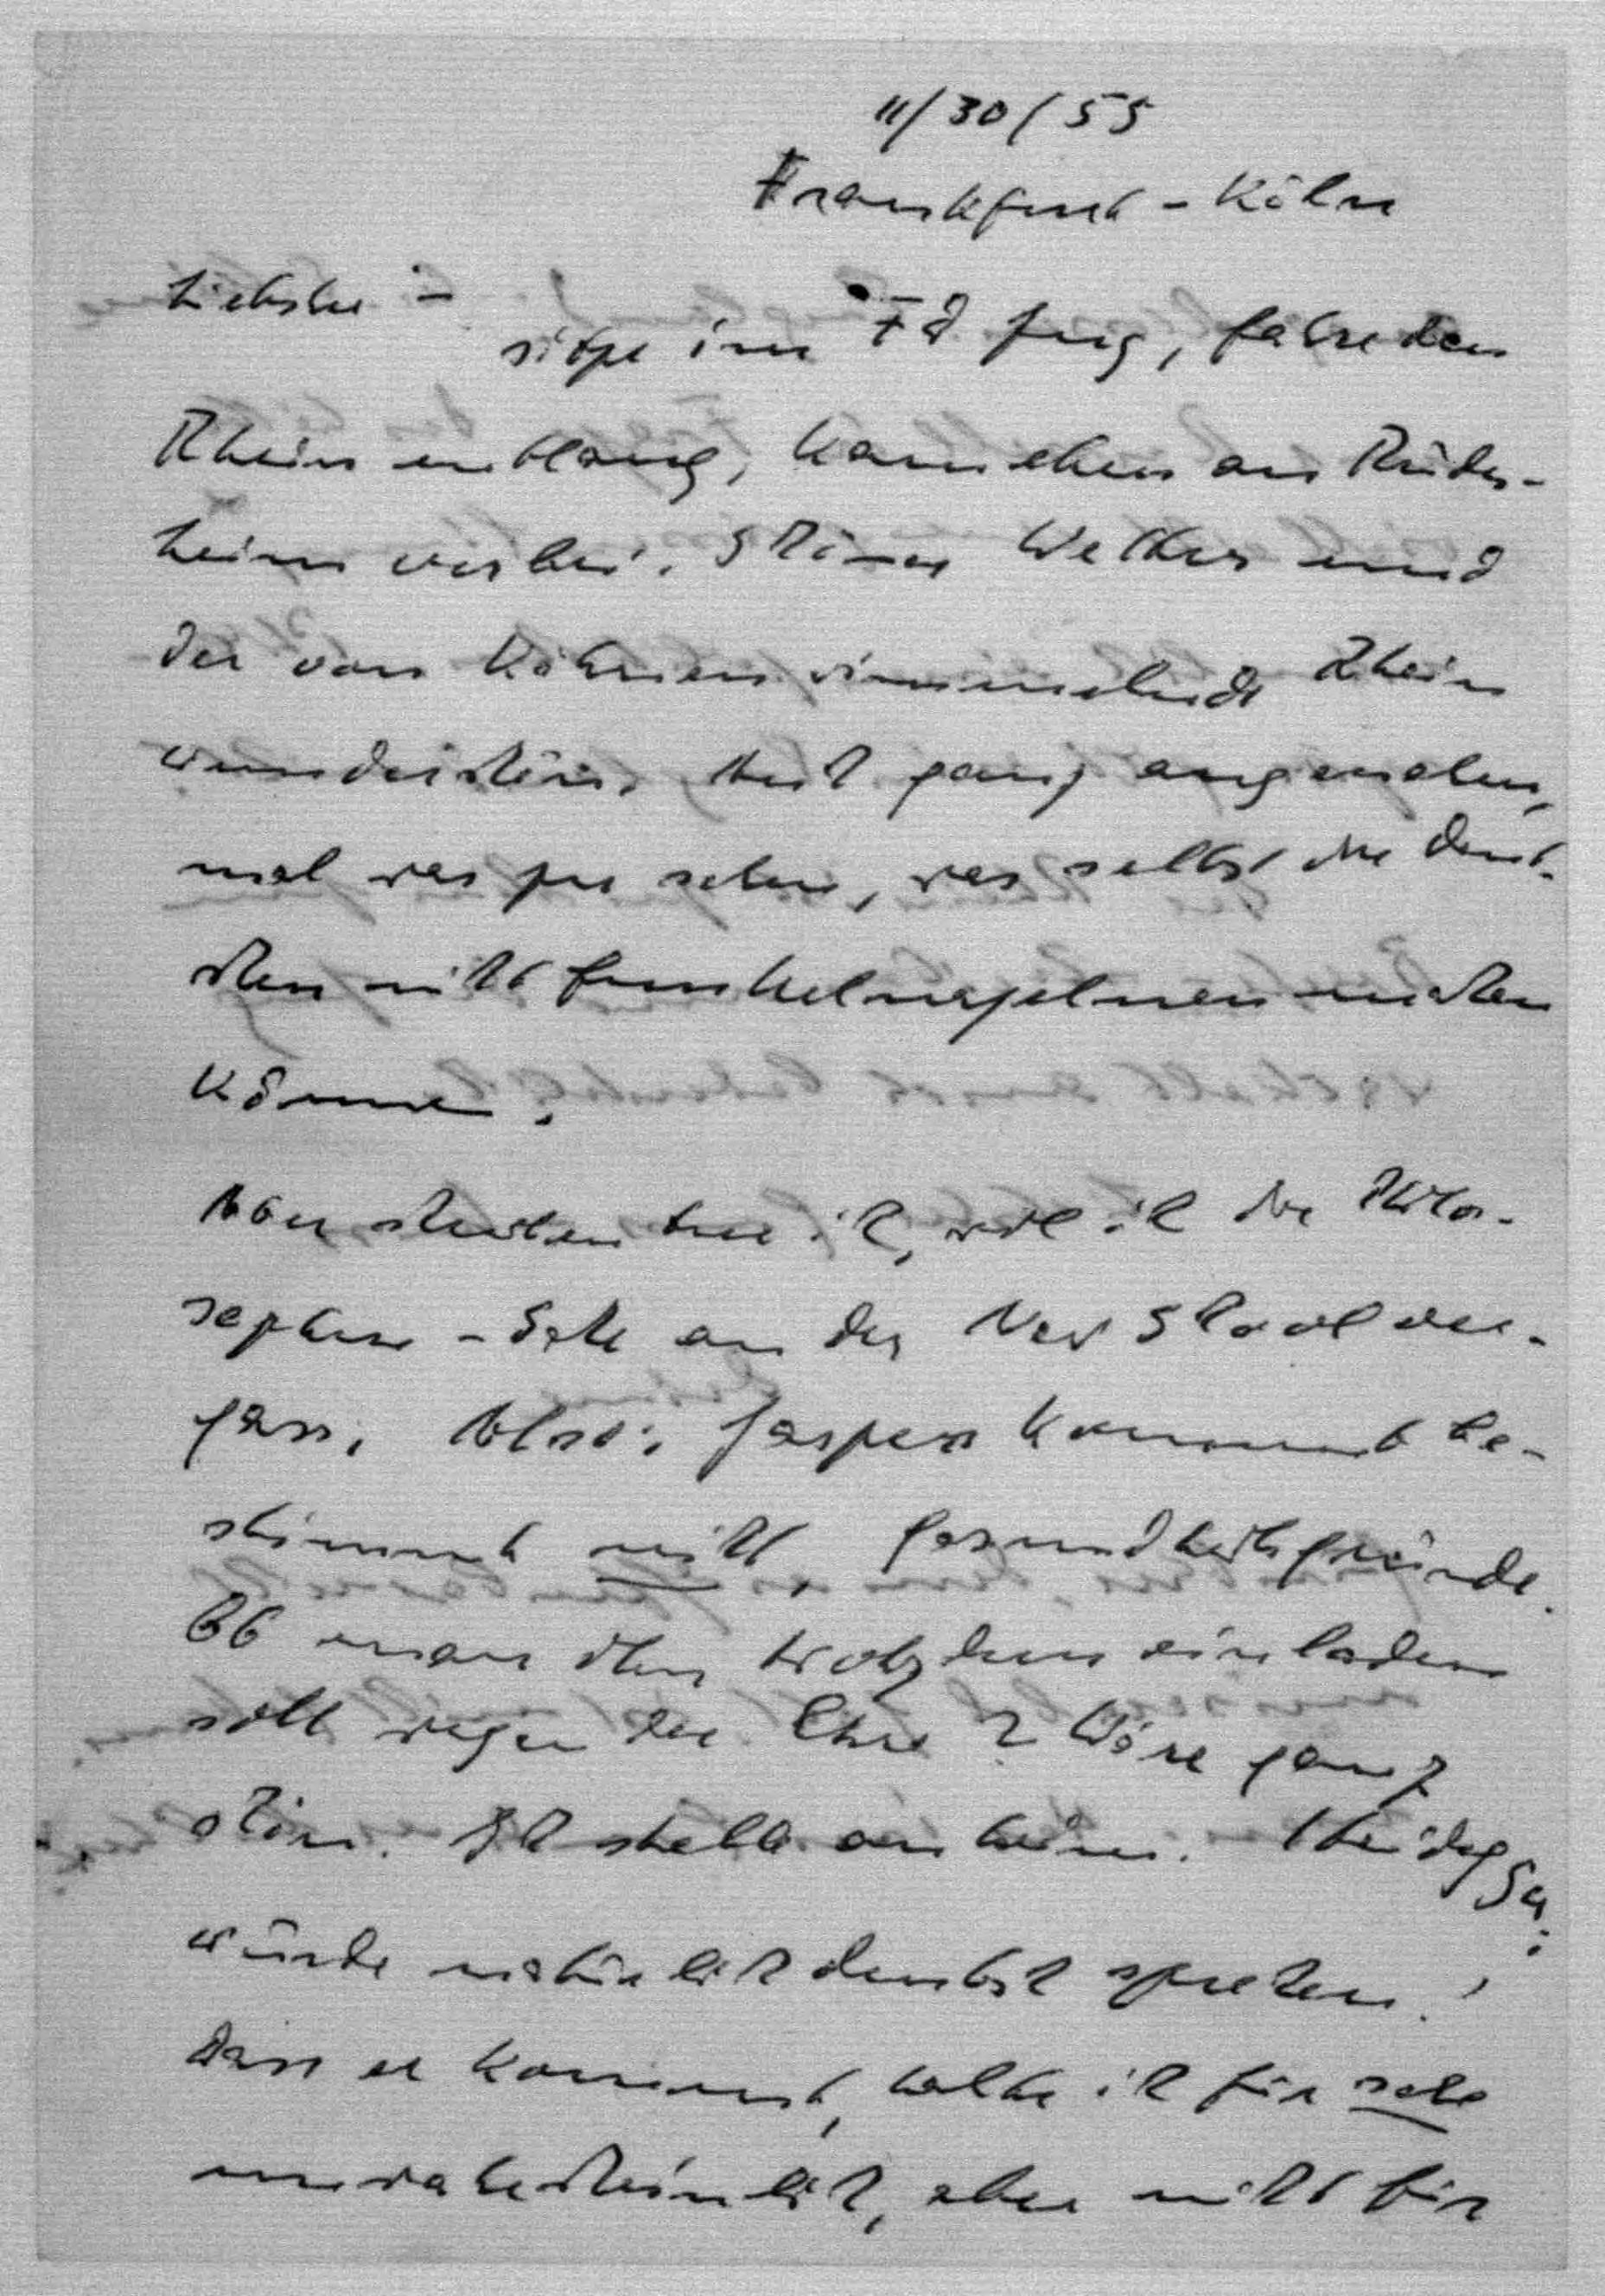 11/30/55
Frankfurt - Köln
Liebster -
sitze im FD Zug, fahre den
Rhein entlang, kam eben an Rüdes-
heim vorbei. Schönes Wetter und
der von Kähnen wimmelnde Rhein
wunderschön. Und ganz angenehm,
mal was zu sehen, was selbst die Deut-
schen nicht funkelnagelneu machen
können.
schreiben tue ich, weil ich die Philo-
sophen - Sache an der New School ver-
gass. Also: Jaspers kommt be-
stimmt nicht, Gesundheitsgründe.
Ob man ihn trotzdem einladen
soll wegen der Ehre? Wäre ganz
schön. Ich stelle anheim. Heidegger:
würde natürlich deutsch sprechen!
Dass er kommt, halte ich für sehr
unwahrscheinlich, aber nicht für